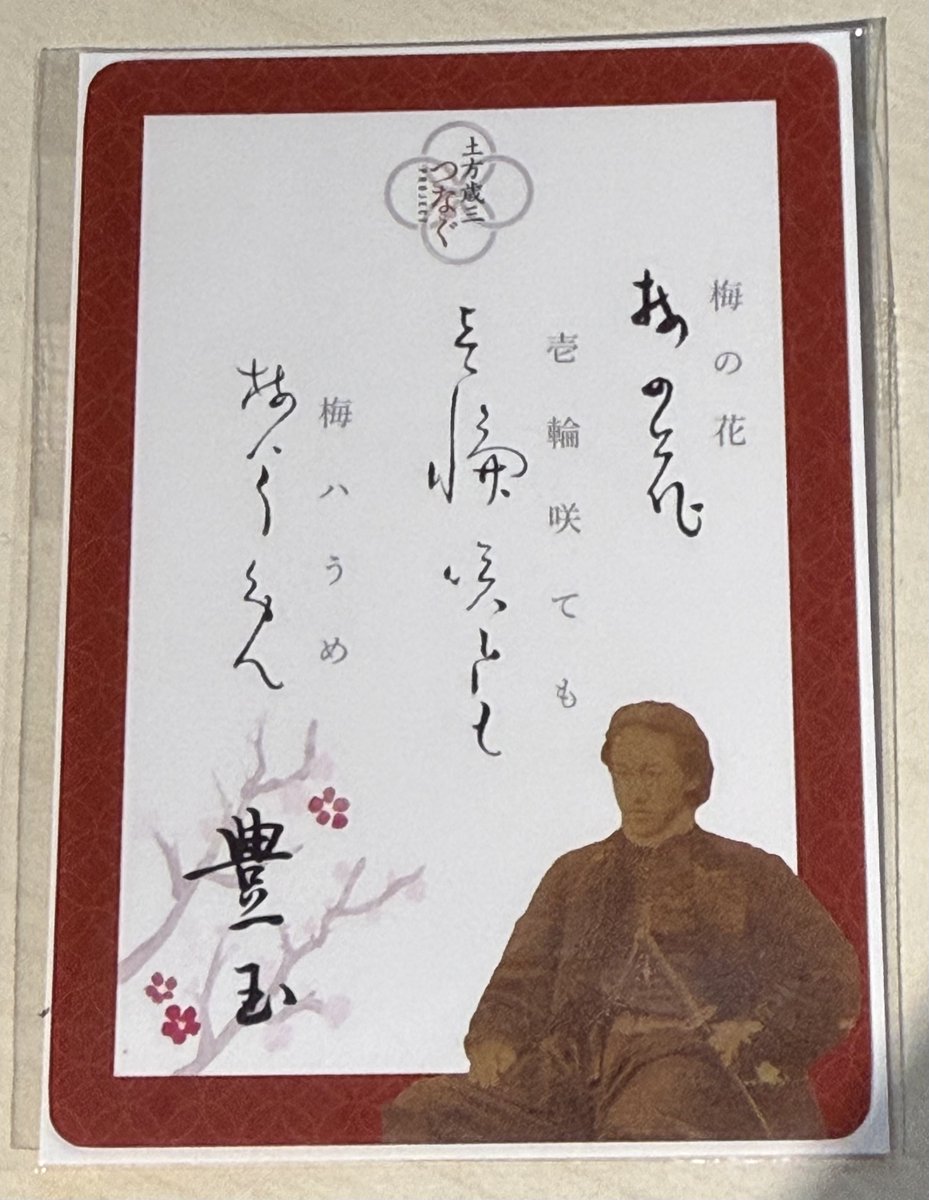 土方歳三
つなぐ
PROJECT
梅の花
梅の花
壱輪咲ても
壱輪咲ても
梅ハうめ
梅ハうめ
豊玉